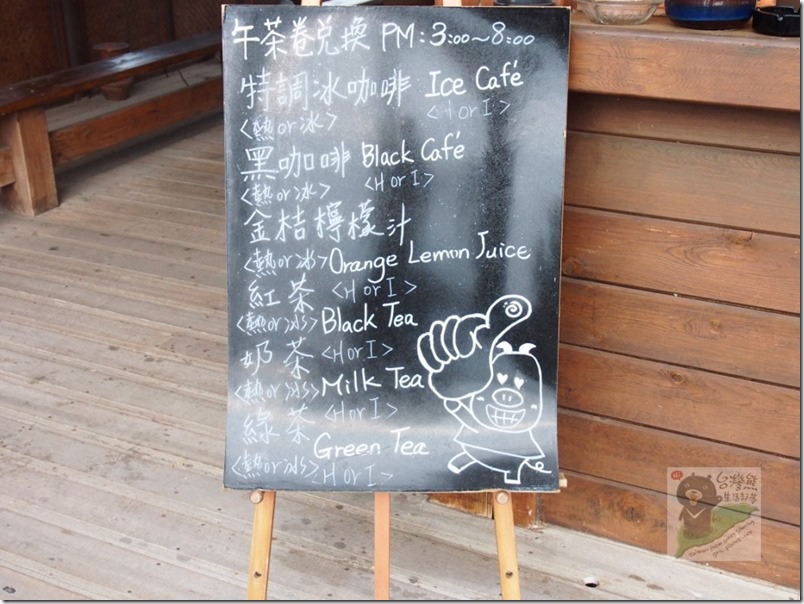 午茶卷兌換 PM:3:00~8:00
特調冰咖啡 Ice Café
<熱or冰> <H or I>
黑咖啡 Black Café
<熱or冰> <H or I>
金桔檸檬汁
<熱or冰> Orange Lemon Juice
紅茶 <H or I>
<熱or冰> Black Tea
奶茶 <H or I>
<熱or冰> Milk Tea
綠茶 <H or I>
<熱or冰> Green Tea
<H or I>
台灣熊
生活記營